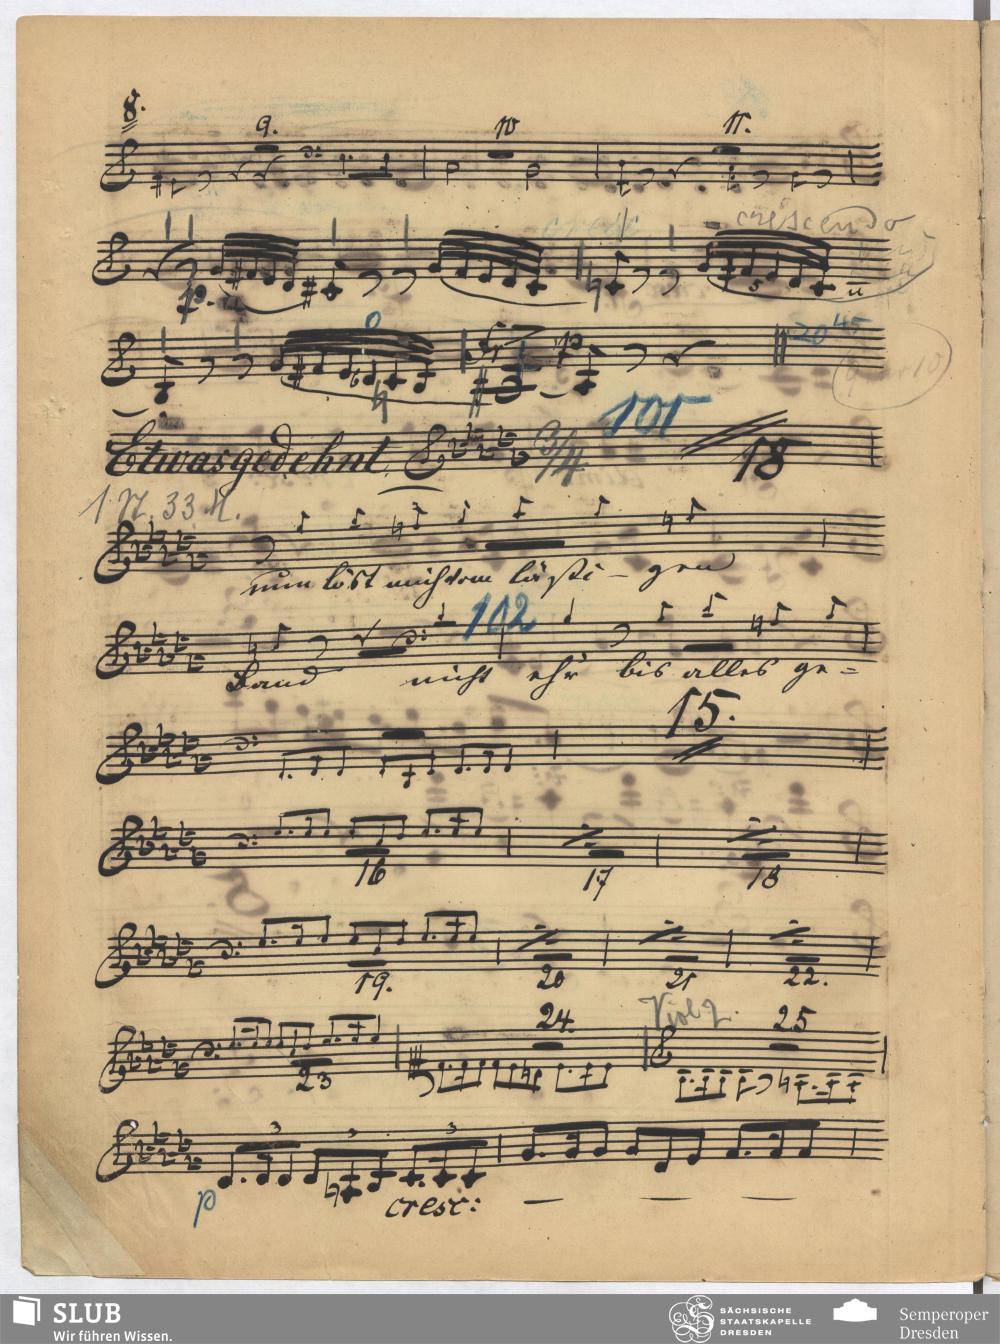 8.
9. 10 11.
cresc crescendo
p.
p 20 45
Etwas gedehnt 3/4 101 18
1 M. 33 H.
nun löst mich vom läßti - gen
102
Band nicht ehr bis alles ge=
15.
16 17 18
19. 20 21 22.
23 24. Viol 2. 25
3 3 3
p cresc:
SLUB
Wir führen Wissen.
SÄCHSISCHE
STAATSKAPELLE
DRESDEN
Semperoper
Dresden